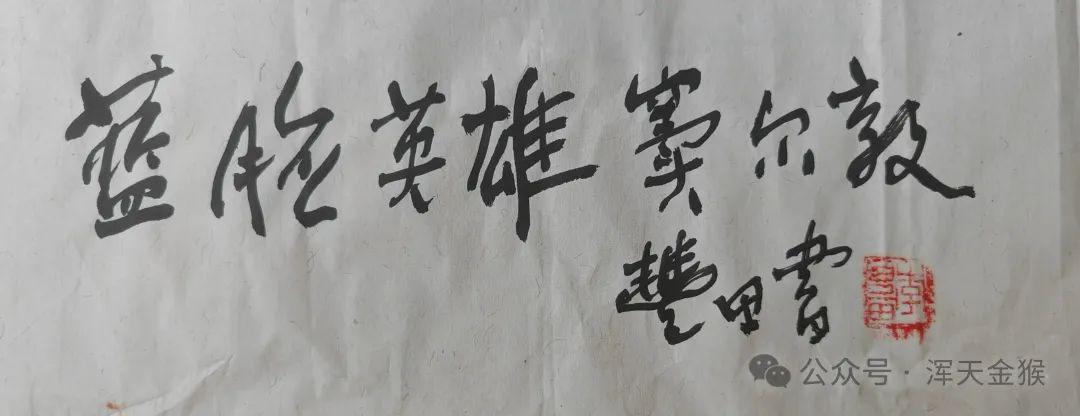 蓝脸英雄窦尔敦
豐田書
公众号·浑天金猴